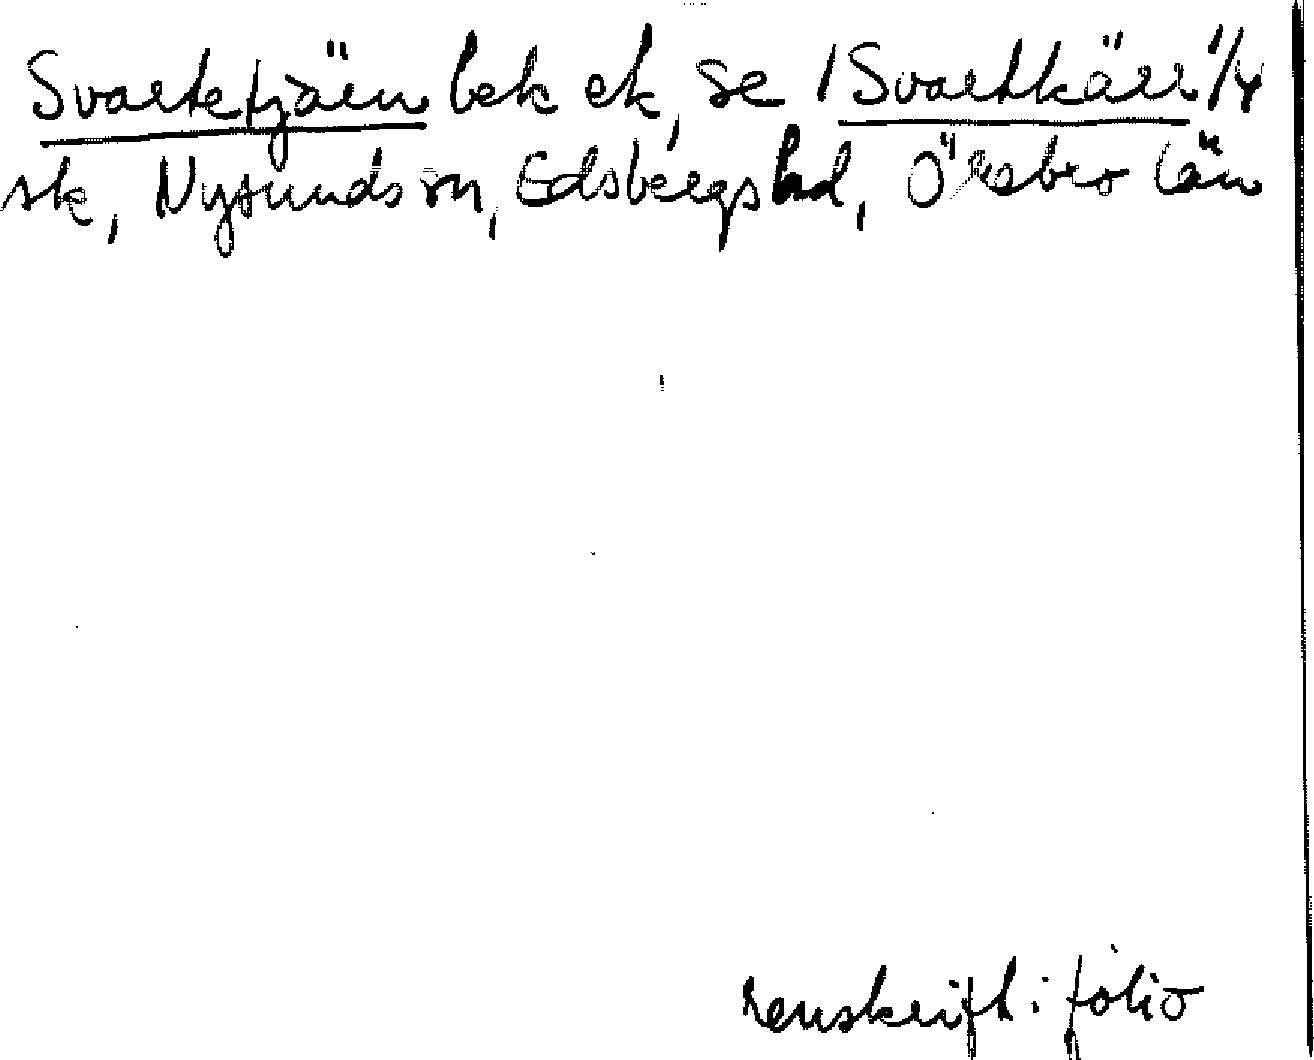 Svartetjärn bek ek, se 1 Svartkärr 1/4
sk, Nysunds sn, Edsbergs hd, Örebro län
renskrift i folio